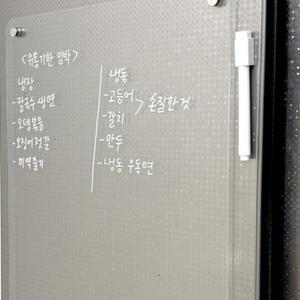 <유통기한 임박>
냉장
-칼국수 생면
-오뎅볶음
-오징어 젓갈
-미역줄기
냉동
-고등어
-갈치 > 손질한 것
-만두
-냉동 우동면